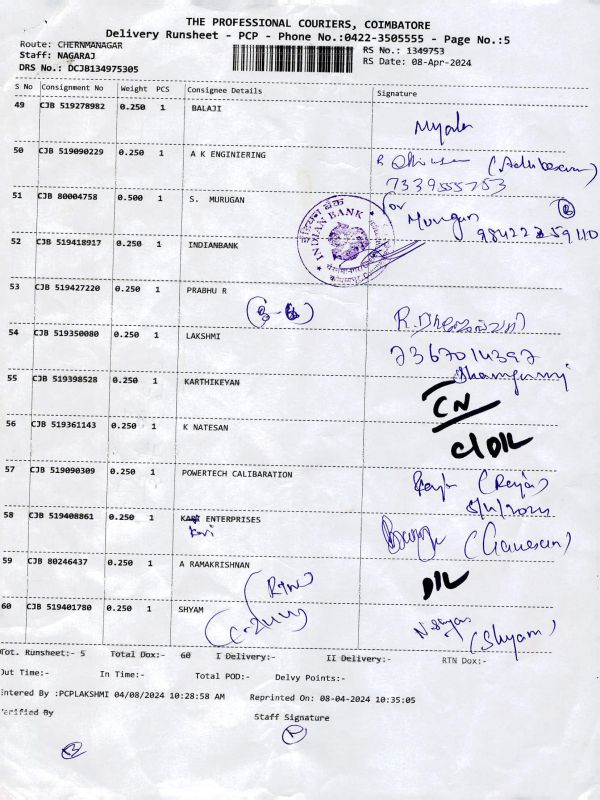 THE PROFESSIONAL COURIERS, COIMBATORE
Delivery Runsheet - PCP - Phone No.:0422-3505555 - Page No.:5
Route: CHERNMANAGAR
Staff: NAGARAJ
DRS No.: DCJB134975305
RS No.: 1349753
RS Date: 08-Apr-2024
S No Consignment No Weight PCS Consignee Details Signature
49 CJB 519278982 0.250 1 BALAJI
50 CJB 519090229 0.250 1 A K ENGINIERING
7339555753
51 CJB 80004758 0.500 1 S. MURUGAN
for
Murugan
INDIAN BANK
52 CJB 519418917 0.250 1 INDIANBANK
53 CJB 519427220 0.250 1 PRABHU R
54 CJB 519350080 0.250 1 LAKSHMI
55 CJB 519398528 0.250 1 KARTHIKEYAN
CN
56 CJB 519361143 0.250 1 K NATESAN
C/DIL
57 CJB 519090309 0.250 1 POWERTECH CALIBARATION
58 CJB 519408861 0.250 1 ENTERPRISES
(Ganesan)
59 CJB 80246437 0.250 1 A RAMAKRISHNAN
DIL
60 CJB 519401780 0.250 1 SHYAM
(Shyam)
Tot. Runsheet:- 5 Total Dox:- 60 I Delivery:- II Delivery:- RTN Dox:-
Out Time:- In Time:- Total POD:- Delvy Points:-
Entered By :PCPLAKSHMI 04/08/2024 10:28:58 AM Reprinted On: 08-04-2024 10:35:05
Verified By Staff Signature